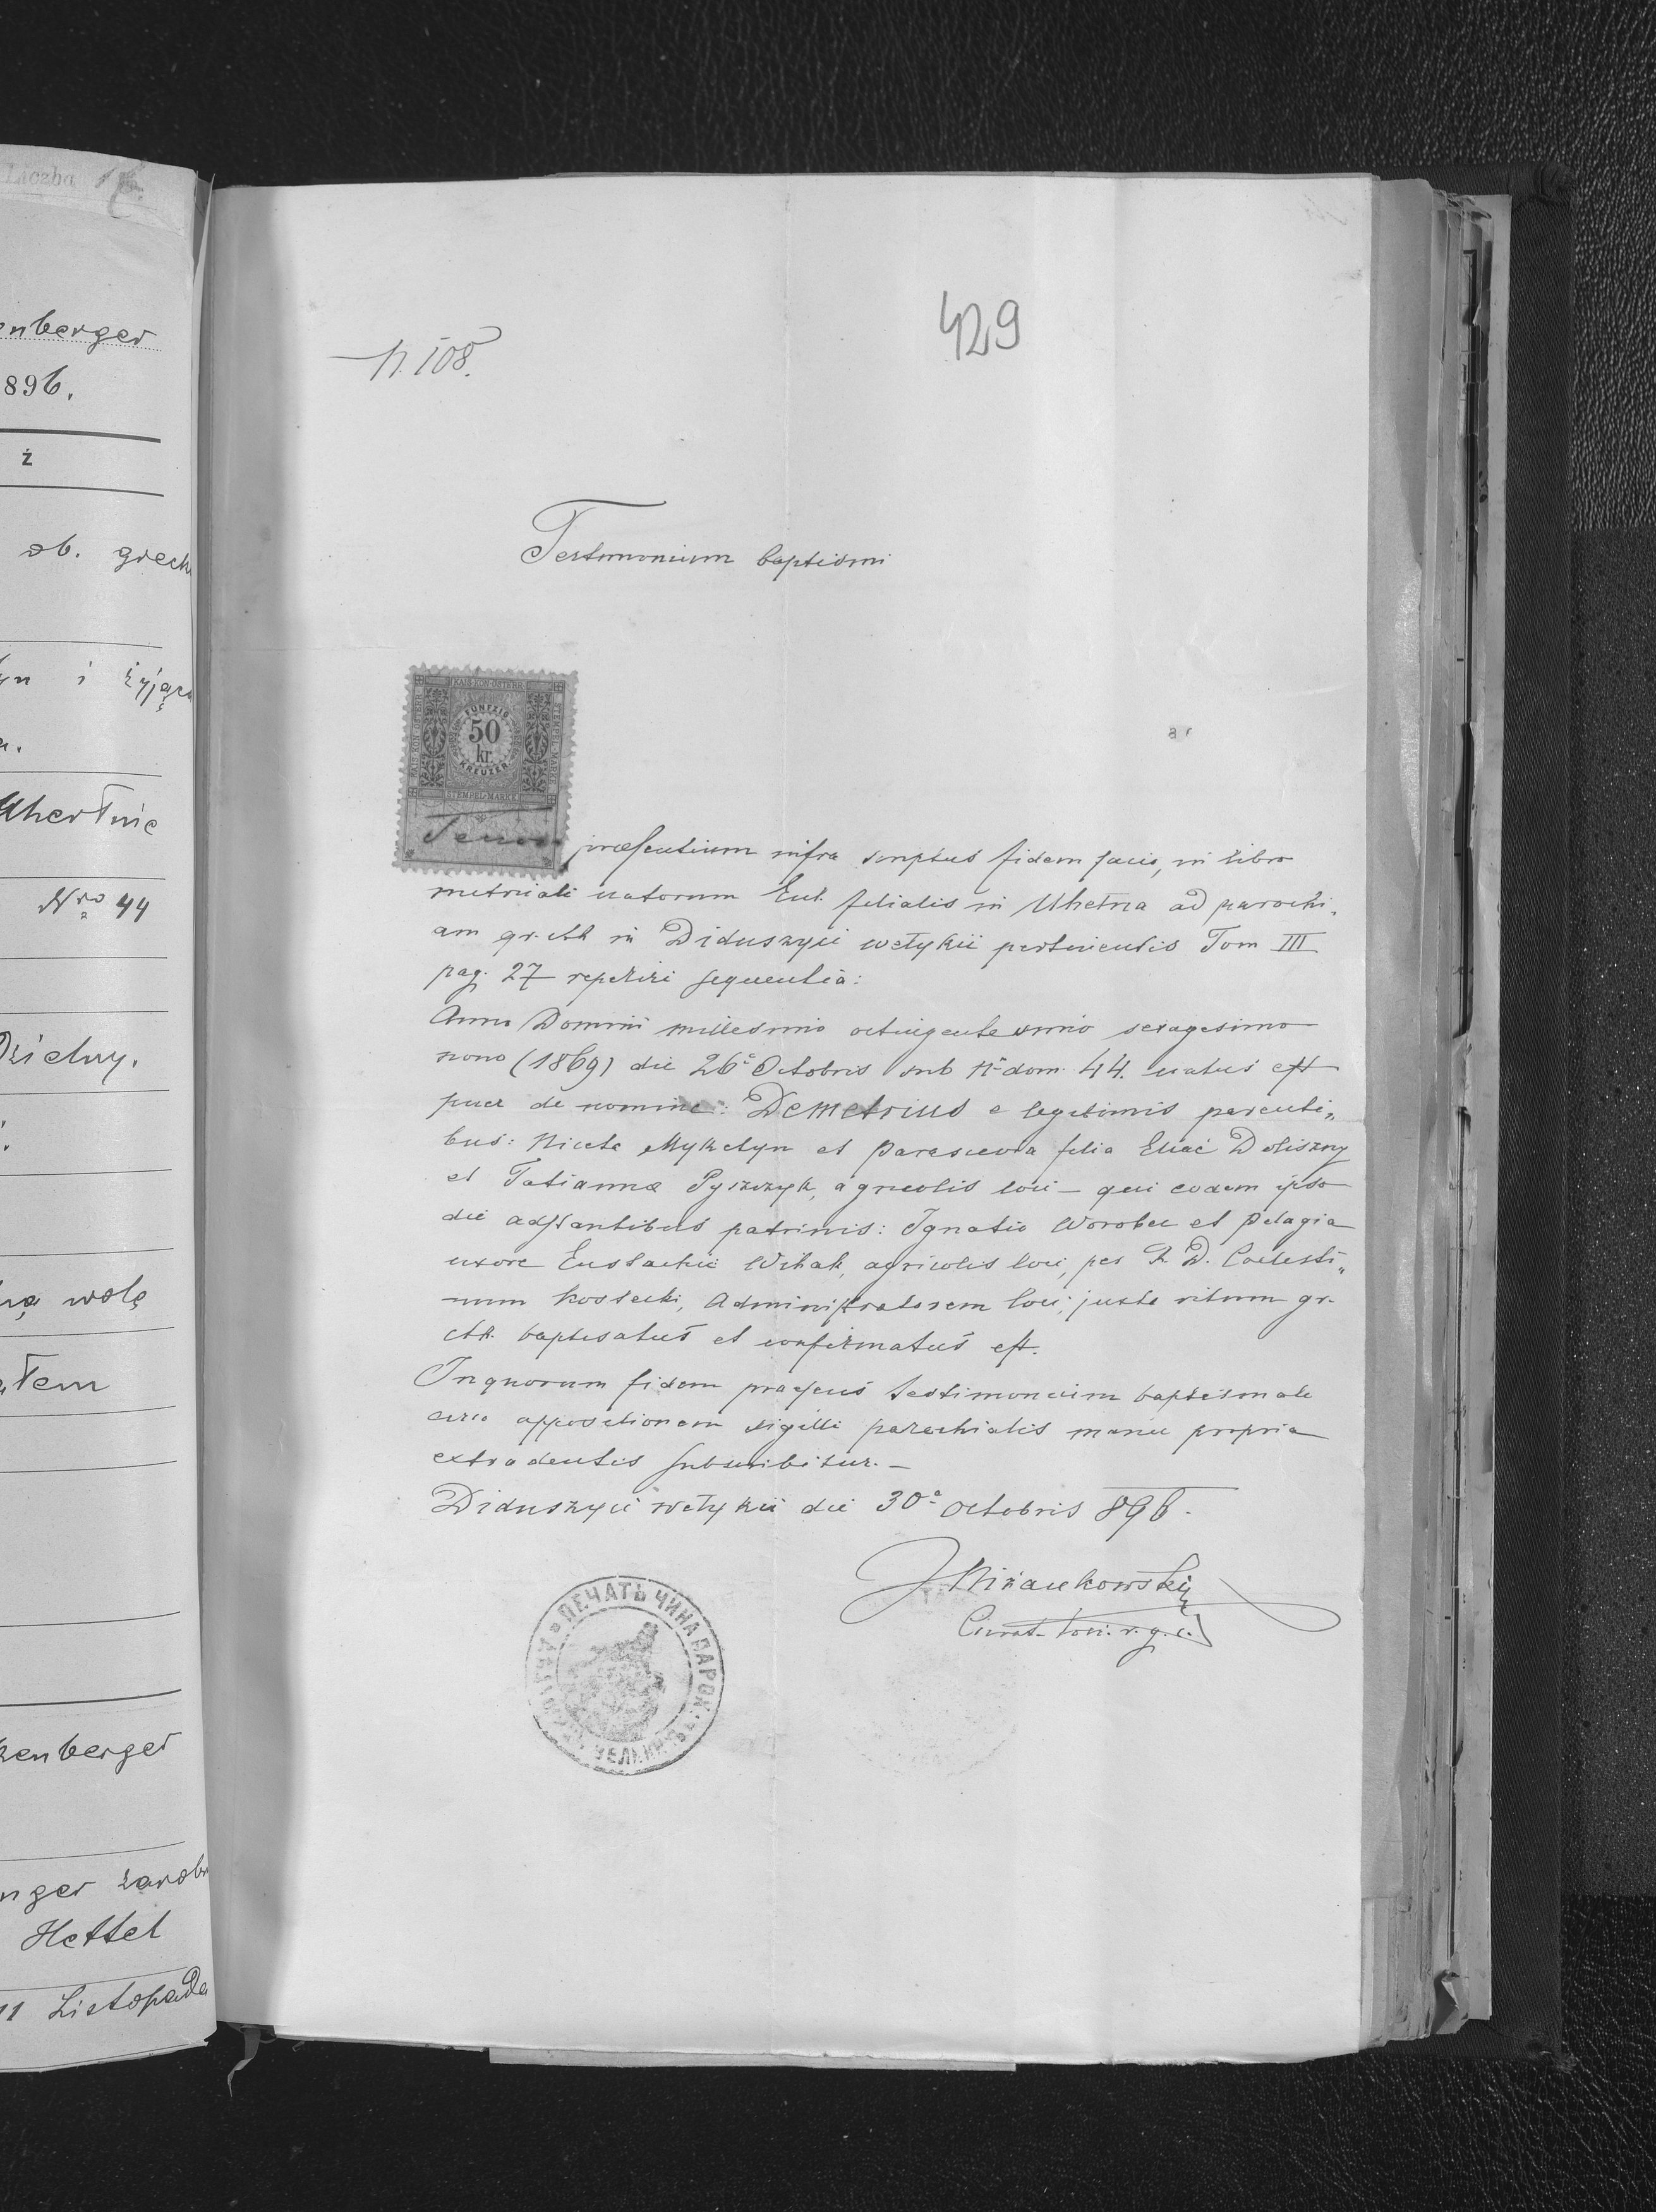 Liczba
enberger
896.
ż
ob. grech
i żyjąca
Uhertnie
Nro 44
Dzielny.
wolę
Hettel
11 Listopada
N. 108.
429
Testimonium baptismi
KAIS. KÖN. ÖSTERR.
FÜNFZIG
50
kr.
KREUZER
STEMPEL-MARKE
Tenore praesentium infra scriptus fidem facio, in libro
metricali natorum Eccl. filialis in Uhełna ad parochi„
am gr. cth in Diduszyci wełykii pertinentis Tom III
pag. 27 reperiri sequentia:
Anno Domini millesimo octingentesimo sexagesimo
nono (1869) die 26ª Octobris sub Nº dom. 44. natus est
puer de nomine: Demetrius e legitimis parenti„
bus: Niceta Myketyn et Parascevia filia Eliae Doliszny
et Tatianna Pyszczyk, agricolis loci – qui eodem ipso
die adstantibus patrinis: Ignatio Worobec et Pelagia
uxore Eustachii Witak, agricolis loci, per R. D. Coelesti„
num Kossecki, Administratorem loci, juxta ritum gr.
cth. baptisatus et confirmatus est.
In quorum fidem praesens testimonium baptismale
circa appositionem sigilli parochialis manu propria
extradentis subscribitur. –
Diduszyci wełykii die 30ª Octobris 896.
J Niżankowskij
Curat. loci. r. g. c.
ПЕЧАТЬ ЧИНА ПАРОХ.